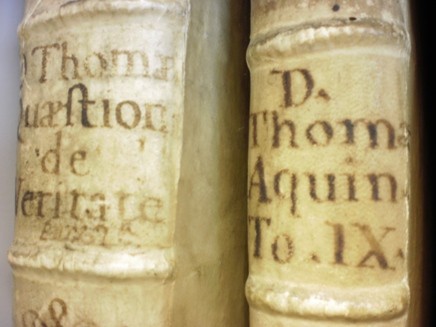 D Thomæ
Quæstion
de
Veritate
D.
Thomæ
Aquin
To. IX.